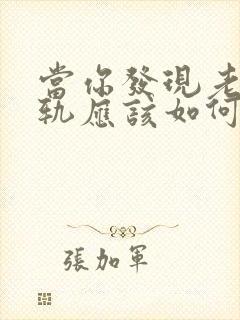 當你發現老
軌應該如何
張加軍